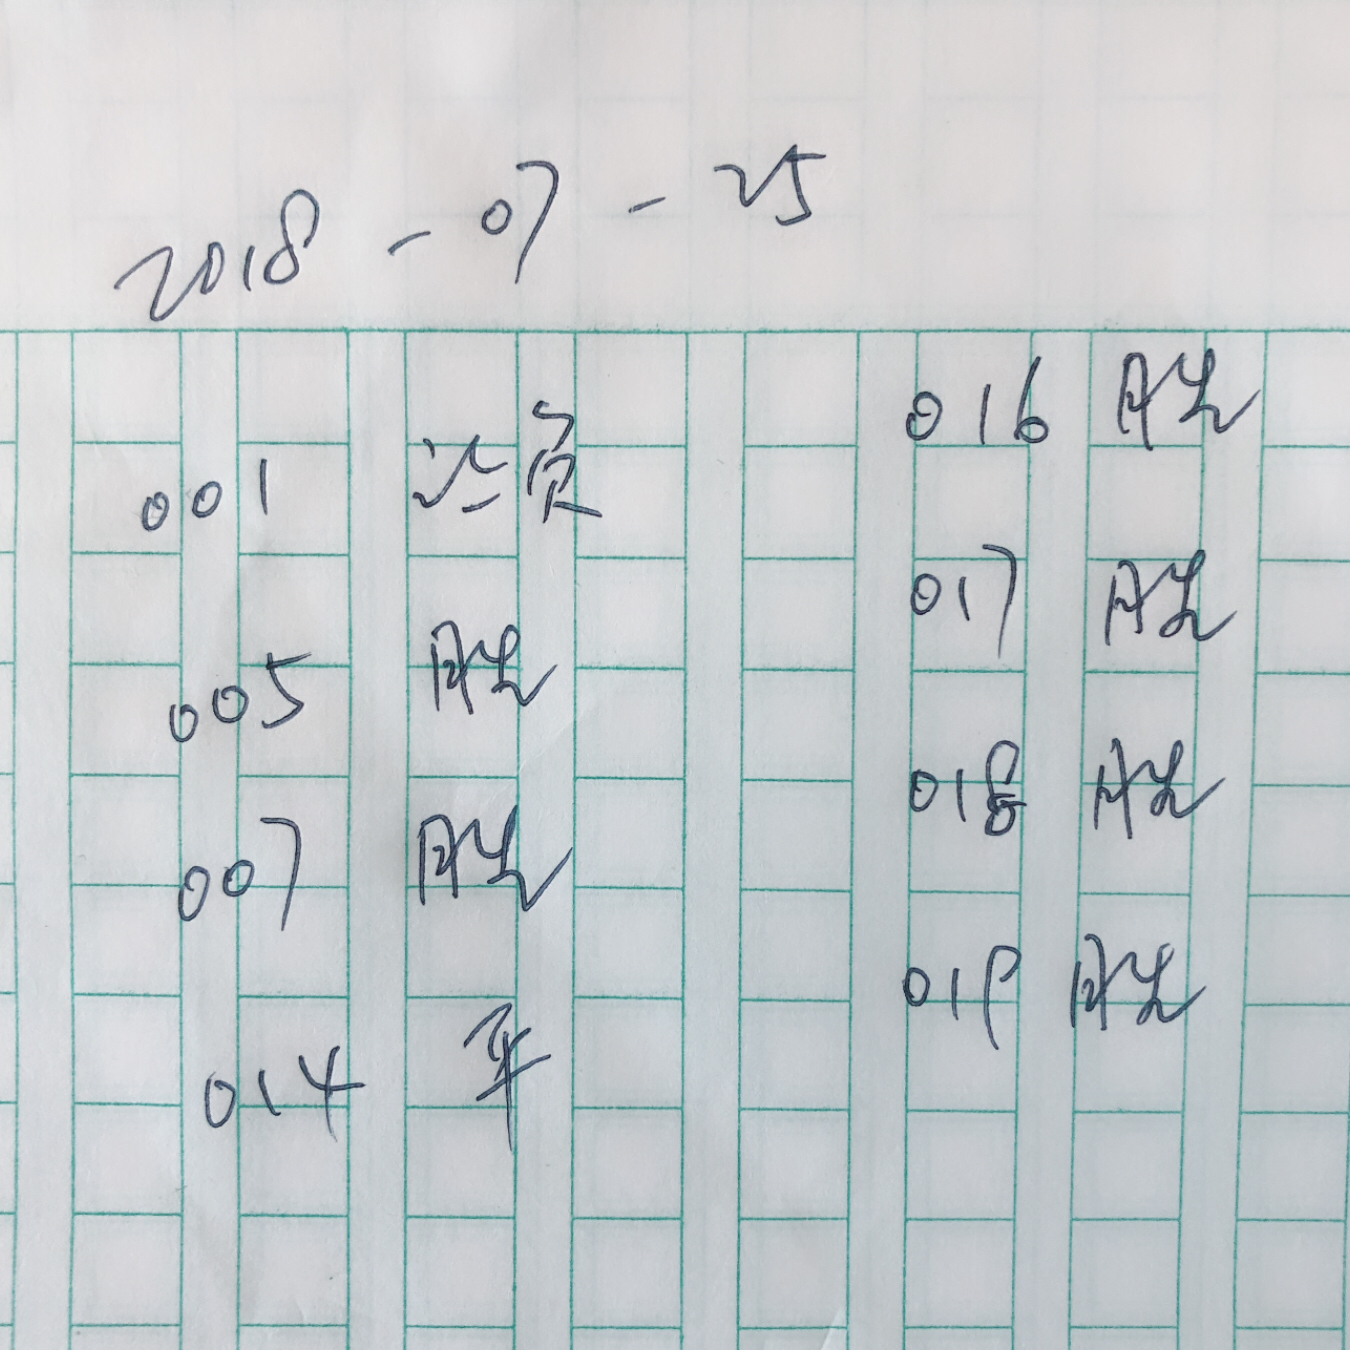 2018-07-25
001 让负
005 胜
007 胜
014 平
016 胜
017 胜
018 胜
019 胜